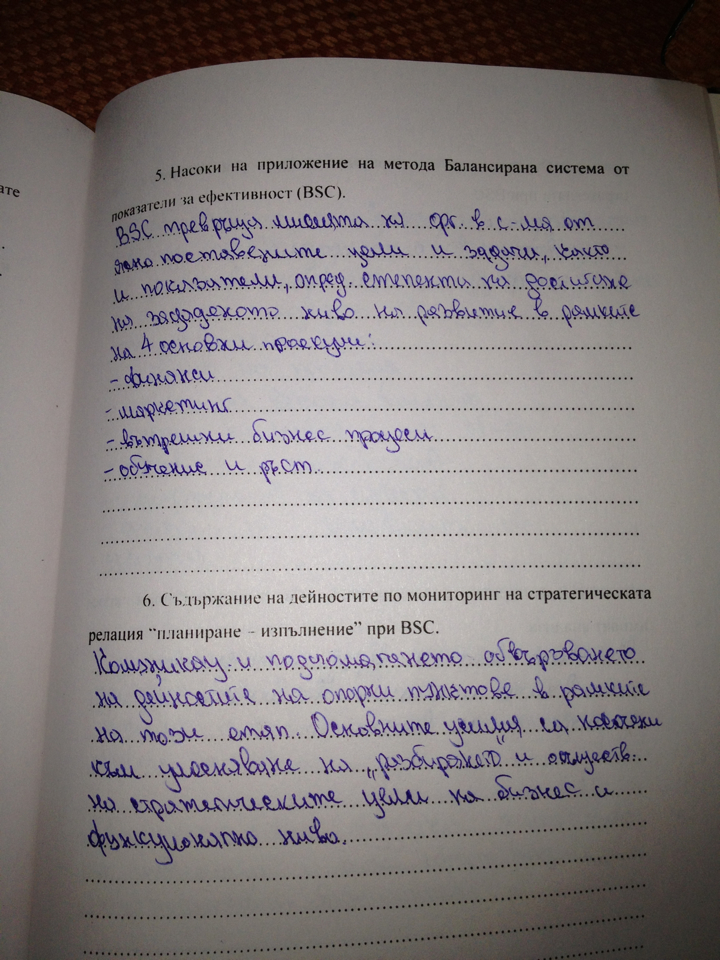 ате
5. Насоки на приложение на метода Балансирана система от
показатели за ефективност (BSC).
BSC превръща мисията на орг. в с-ма от
ясно поставените цели и задачи, както
и показатели, опред. степента на достигане
на зададеното ниво на развитие в рамките
на 4 основни проекции:
- финанси
- маркетинг
- вътрешни бизнес процеси
- обучение и ръст
6. Съдържание на дейностите по мониторинг на стратегическата
релация "планиране – изпълнение" при BSC.
и подпомагането обвързването
на дейностите на опорни пунктове в рамките
на този етап. Основните усилия са насочени
към улесняване на „разбирането" и осъществ.
на стратегическите цели на бизнес и
функционално ниво.